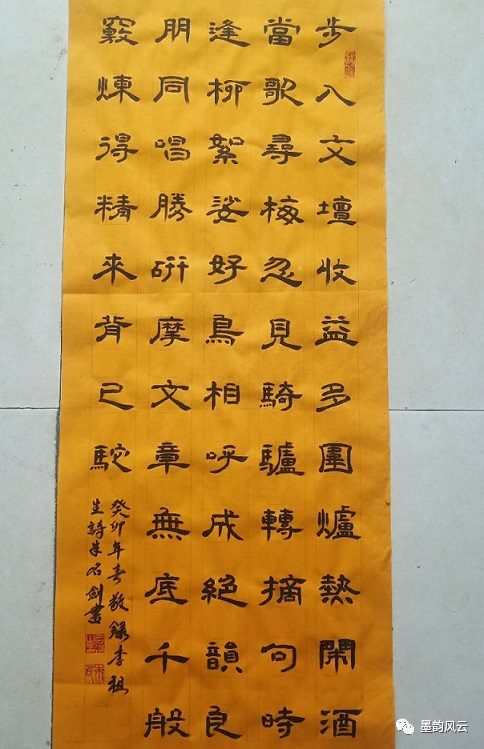 步入文壇收益多圍爐熱閙酒
當歌尋梅忽見騎驢轉摘句時
逢柳絮娑好鳥相呼成絕韻良
朋同唱勝研摩文章無底千般
竅煉得精來背已駝
癸卯年春敬錄李祖
生詩朱石劍書
墨韵风云